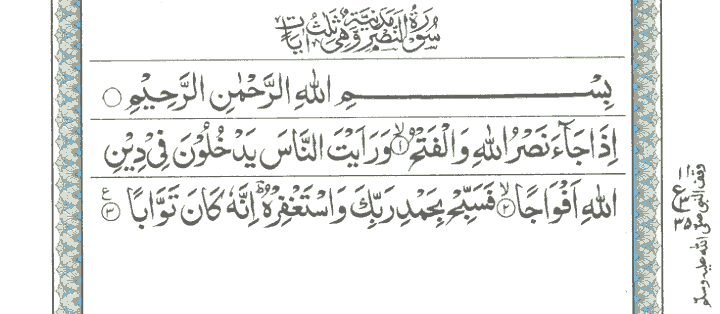 سُوْرَةُ النَّصْرِ مَدَنِيَّةٌ وَّهِیَ ثَلٰثُ اٰیَاتٍ
بِسْمِ اللهِ الرَّحْمٰنِ الرَّحِيْمِ ○
اِذَا جَآءَ نَصْرُ اللهِ وَالْفَتْحُ ۙ﴿۱﴾ وَرَاَيْتَ النَّاسَ يَدْخُلُوْنَ فِیْ دِيْنِ
اللهِ اَفْوَاجًا ۙ﴿۲﴾ فَسَبِّحْ بِحَمْدِ رَبِّكَ وَاسْتَغْفِرْهُ ؕ اِنَّهٗ كَانَ تَوَّابًا ﴿۳﴾ ع
ع
۳
۳۵
وقف النبی صلی الله علیه وسلم